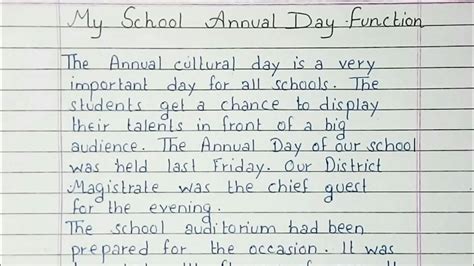 My School Annual Day Function
The Annual cultural day is a very
important day for all schools. The
students get a chance to display
their talents in front of a big
audience. The Annual Day of our school
was held last Friday. Our District
Magistrate was the chief guest
for the evening.
The school auditorium had been
prepared for the occasion. It was